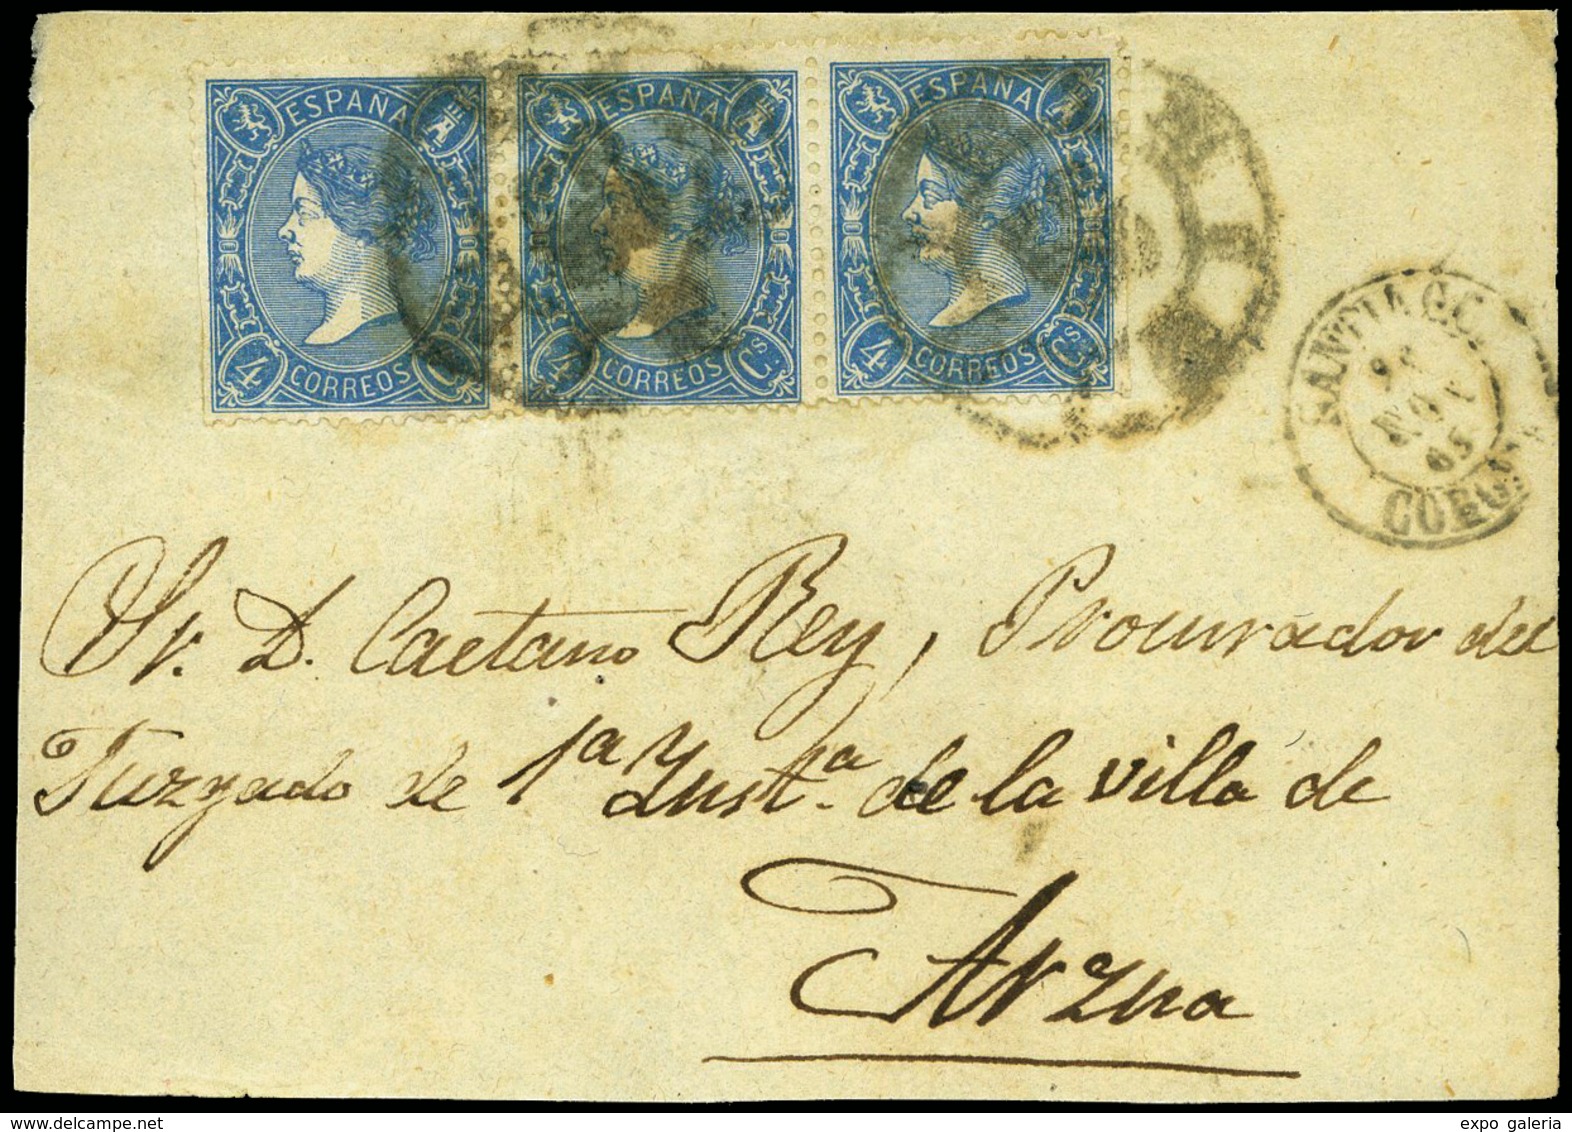 ESPAÑA ESPAÑA ESPAÑA
4 CORREOS Cs 4 CORREOS Cs 4 CORREOS Cs
SANTIAGO
NOV
65
Sr. D. Caetano Rey, Procurador del
Juzgado de 1ª Ynstª. de la villa de
Arzua
expo galeria